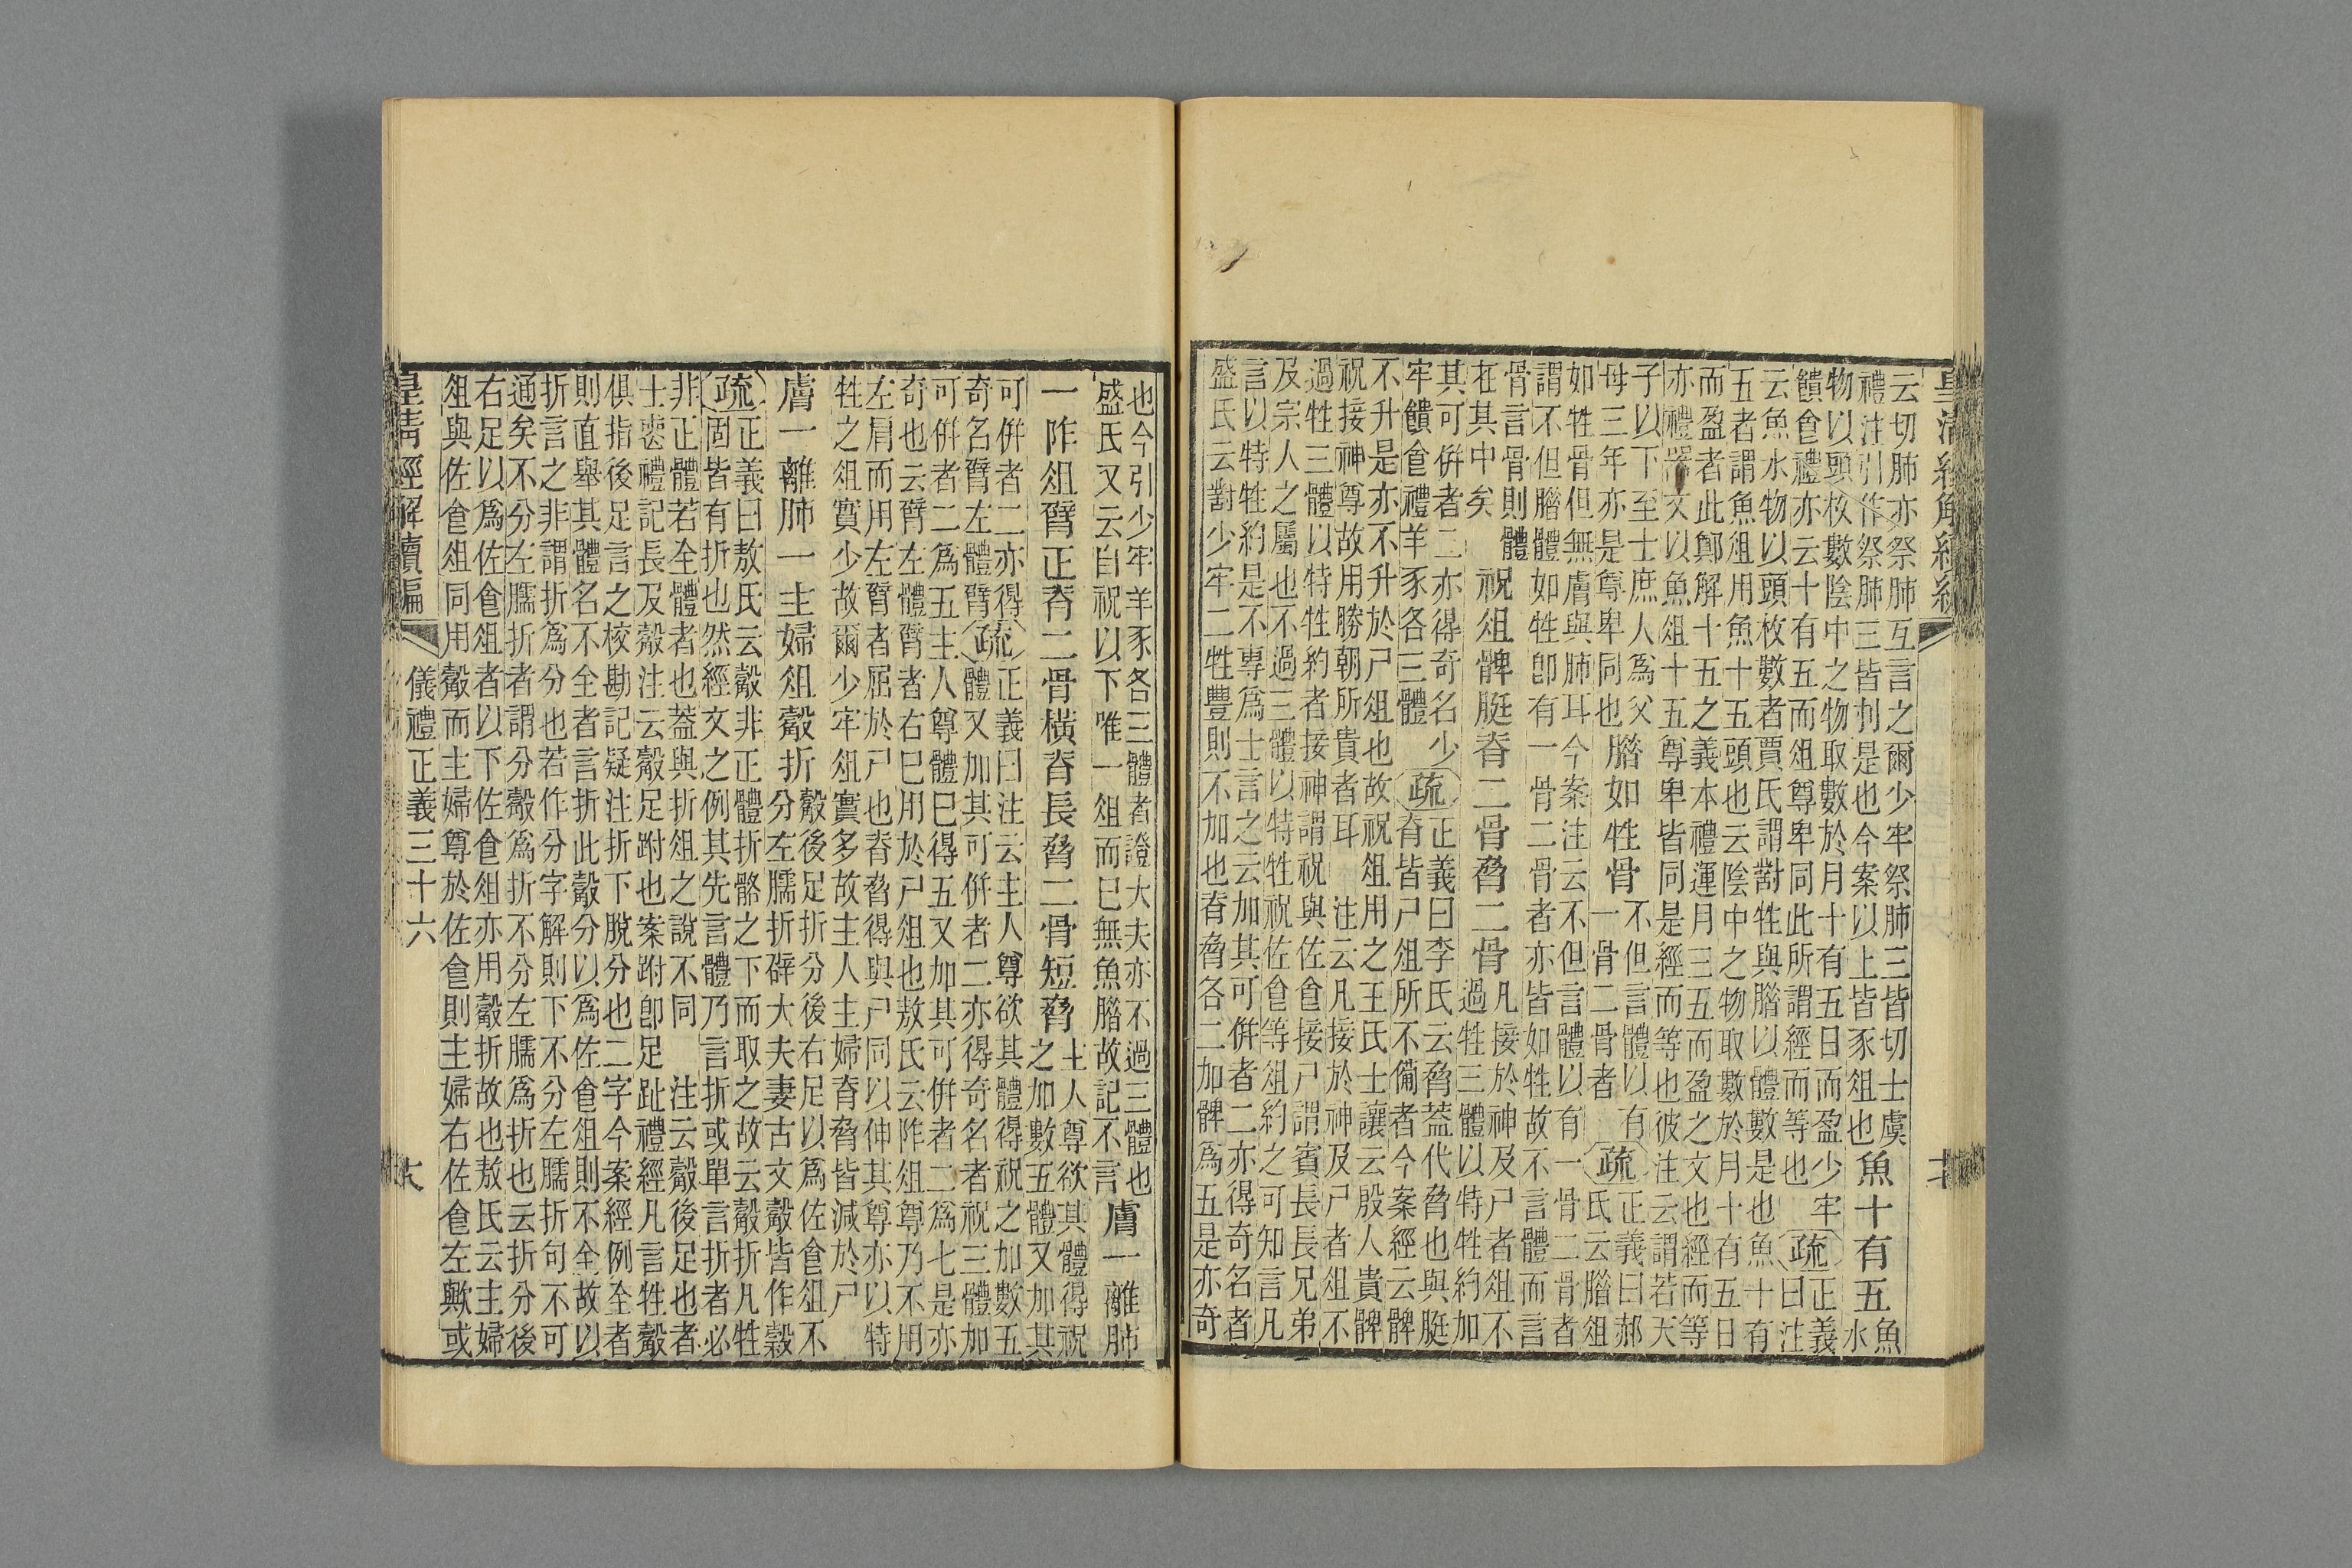 云切肺亦祭肺互言之爾少牢祭肺三皆切士虞
禮注引作祭肺三皆刌是也今案以上皆豕俎也
魚十有五
魚
水
物以頭枚數陰中之物取數於月十有五日而盈少牢
饋食禮亦云十有五而俎尊卑同此所謂經而等也
疏
正義
曰注
云魚水物以頭枚數者賈氏謂對牲與腊以體數是也魚十有
五者謂魚俎用魚十五頭也云陰中之物取數於月十有五日
而盈者此鄭解十五之義本禮運月三五而盈之文也經而等
亦禮器文以魚俎十五尊卑皆同是經而等也彼注云謂若天
子以下至士庶人爲父
母三年亦是尊卑同也
腊如牲骨
不但言體以有
一骨二骨者
疏
正義曰郝
氏云腊俎
如牲骨但無膚與肺耳今案注云不但言體以有一骨二骨者
謂不但腊體如牲卽有一骨二骨者亦皆如牲故不言體而言
骨言骨則體
在其中矣
祝俎髀脡脊二骨脅二骨
凡接於神及尸者俎不
過牲三體以特牲約加
其可併者二亦得奇名少
牢饋食禮羊豕各三體
疏
正義曰李氏云脅蓋代脅也與脡
脊皆尸俎所不備者今案經云髀
不升是亦不升於尸俎也故祝俎用之王氏士讓云殷人貴髀
祝接神尊故用勝朝所貴者耳　注云凡接於神及尸者俎不
過牲三體以特牲約者接神謂祝與佐食接尸謂賓長長兄弟
及宗人之屬也不過三體以特牲祝佐食等俎約之可知言凡
言以特牲約是不專爲士言之云加其可併者二亦得奇名者
盛氏云對少牢二牲豐則不加也脊脅各二加髀爲五是亦奇
也今引少牢羊豕各三體者證大夫亦不過三體也
盛氏又云自祝以下唯一俎而已無魚腊故記不言
膚一離肺
一阼俎臂正脊二骨橫脊長脅二骨短脅
主人尊欲其體得祝
之加數五體又加其
可併者二亦得
奇名臂左體臂
疏
正義曰注云主人尊欲其體得祝之加數五
體又加其可併者二亦得奇名者祝三體加
可併者二爲五主人尊體已得五又加其可併者二爲七是亦
奇也云臂左體臂者右已用於尸俎也敖氏云阼俎尊乃不用
左肩而用左臂者屈於尸也脊脅得與尸同以伸其尊亦以特
牲之俎實少故爾少牢俎實多故主人主婦脊脅皆減於尸
膚一離肺一主婦俎觳折
觳後足折分後右足以爲佐食俎不
分左臑折辟大夫妻古文觳皆作穀
疏
正義曰敖氏云觳非正體折骼之下而取之故云觳折凡牲
固皆有折也然經文之例其先言體乃言折或單言折者必
非正體若全體者也蓋與折俎之說不同　注云觳後足也者
士喪禮記長及觳注云觳足跗也案跗卽足趾禮經凡言牲觳
俱指後足言之校勘記疑注折下脫分也二字今案經例全者
則直舉其體名不全者言折此觳分以爲佐食俎則不全故以
折言之非謂折爲分也若作分字解則下不分左臑折句不可
通矣不分左臑折者謂分觳爲折不分左臑爲折也云折分後
右足以爲佐食俎者以下佐食俎亦用觳折故也敖氏云主婦
俎與佐食俎同用觳而主婦尊於佐食則主婦右佐食左歟或
皇清經解續編
儀禮正義三十六